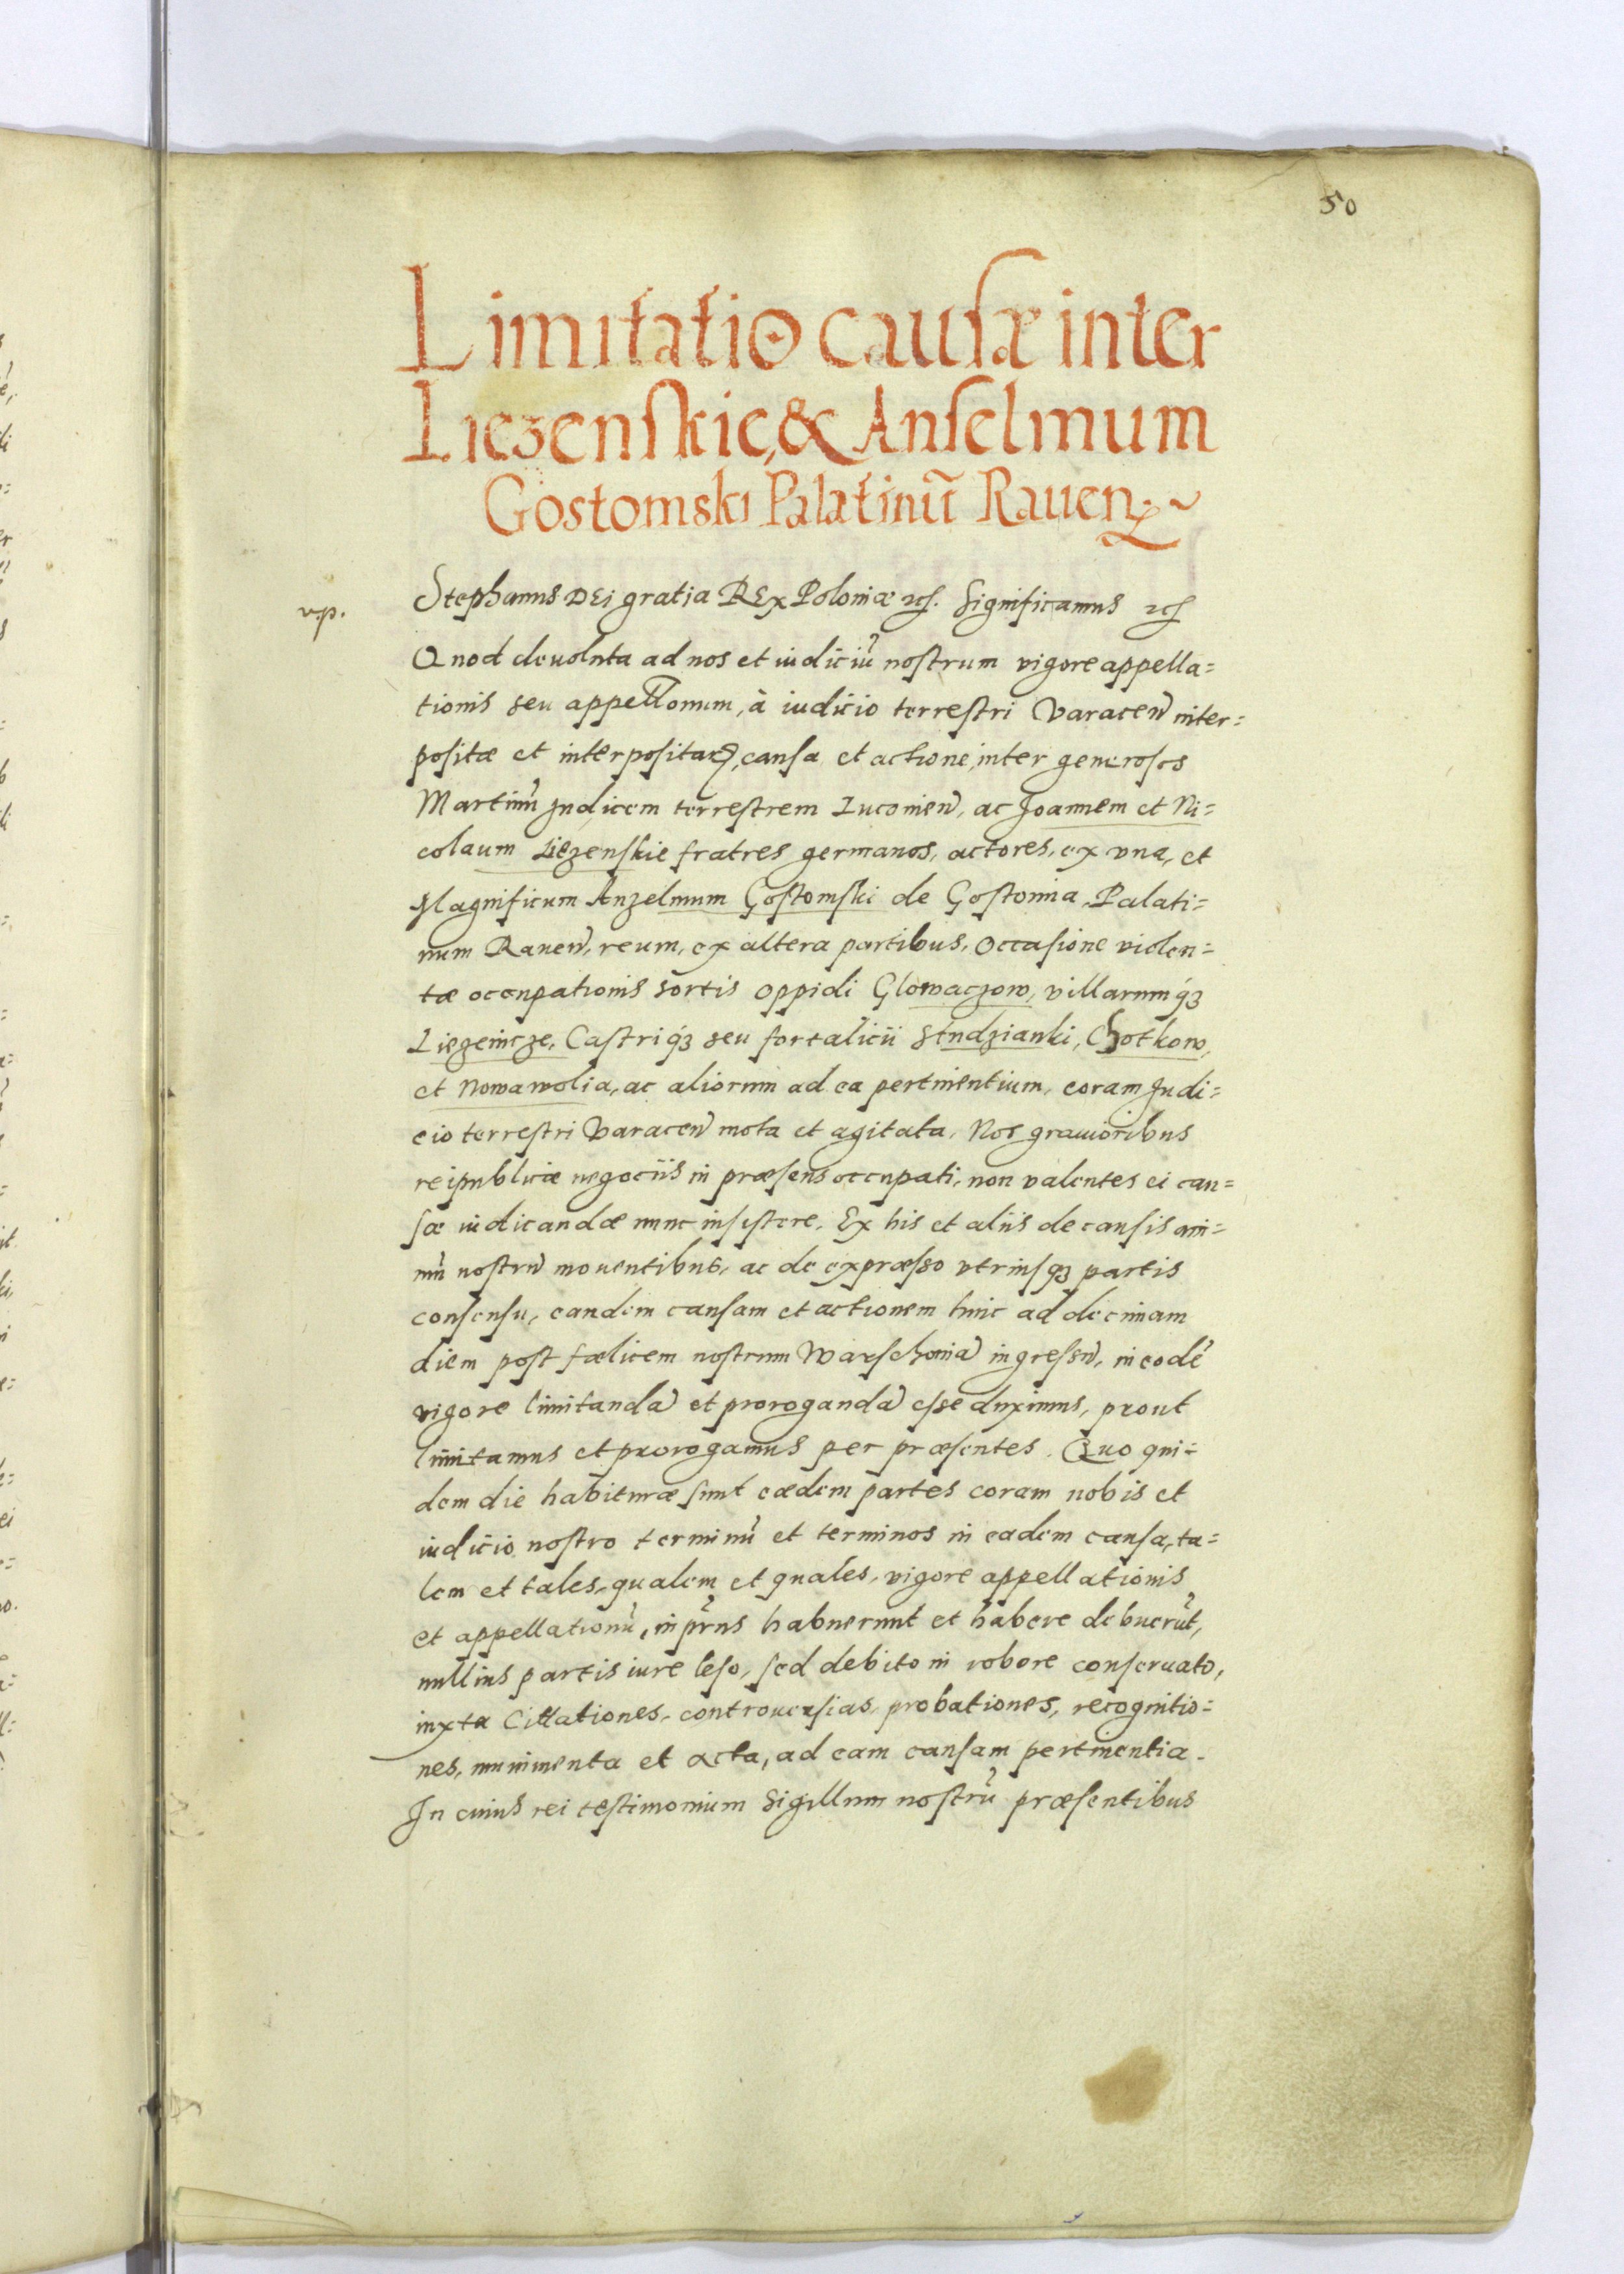 50
Limitatio causæ inter
Liezenskie, & Anselmum
Gostomski Palatinũ Rauen̄
v.p.
Stephanus DEi gratia REx Poloniæ etc. Significamus etc
Quod deuoluta ad nos et iudiciũ nostrum vigore appella=
tionis seu appellonum, à iudicio terrestri Varacen̄ inter=
positæ et interpositarꝝ, causa et actione, inter generosos
Martinũ Judicem terrestrem Luconien̄, ac Joannem et Ni=
colaum Liezenskie fratres germanos, actores, ex vna, et
Magnificum Anzelmum Gostomski de Gostomia, Palati=
num Rauen̄, reum, ex altera partibus, Occasione violen=
tæ occupationis sortis oppidi Glowaczow, villarumqꝫ
Liezenicze, Castriqꝫ seu fortalicii Studzianki, Chotkow,
et Nowawolia, ac aliorum ad ea pertinentium, coram Judi=
cio terrestri Varacen̄ mota et agitata. Nos grauioribus
reipublicæ negociis in præsens occupati, non valentes ei cau=
sæ iudicandæ nunc insistere, Ex his et aliis de causis ani=
mũ nostrũ mouentibus, ac de expræsso vtriusqꝫ partis
consensu, eandem causam et actionem hinc ad decimam
diem post fœlicem nostrum Warschouiã ingressũ, in eodẽ
vigore limitandã et prorogandã esse duximus, prout
limitamus et prorogamus per præsentes. Quo qui=
dem die habituræ sunt eædem partes coram nobis et
iudicio nostro terminũ et terminos in eadem causa, ta=
lem et tales, qualem et quales, vigore appellationis
et appellationũ, inpr̃ns habuerunt et habere debuerũt,
nullius partis iure leso, sed debito in robore conseruato,
iuxta Cittationes, controuersias, probationes, recognitio=
nes, munimenta et acta, ad eam causam pertinentia.
In cuius rei testimonium Sigillum nostrũ præsentibus